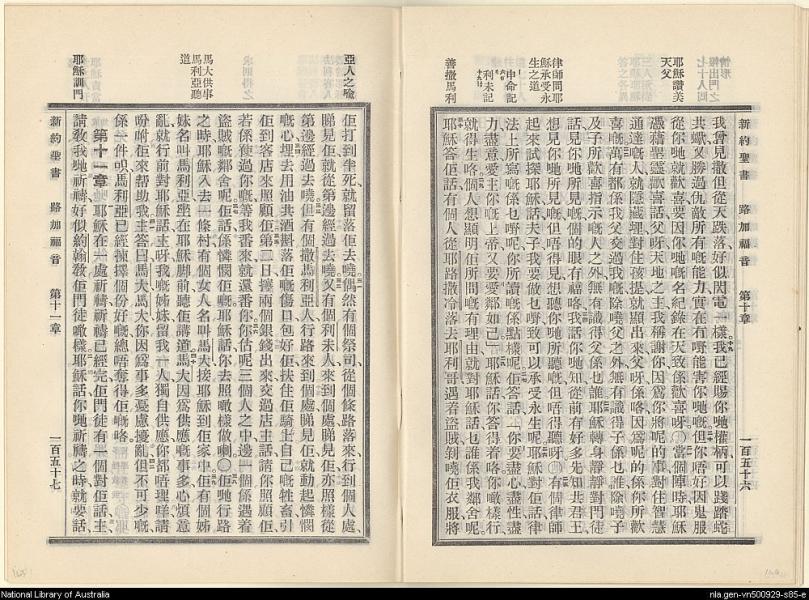 新約聖書　路加福音　第十章　一百五十六
律師問耶
穌承受永
生之道
申命記
利未記
善撒馬利
耶穌讚美
天父
我曾見撒但從天跌落好似閃電一樣我已經賜你哋權柄可以踐踏蛇
共蠍又勝過仇敵所有嘅能力實在有嘢能害你哋嘅但你唔好因鬼服
從你哋就歡喜要因你哋嘅名紀錄在天致係歡喜呀〇當個陣時耶穌
憑藉聖靈歡喜話父呀天地之主我稱謝你因爲你將呢的事對住智慧
通達嘅人就隱藏埋對住孩提就顯出來父呀係咯因爲呢的係你所歡
喜嘅萬有都係我父交過我嘅除嘵父之外無有識得子係乜誰除嘵子
及子所歡喜指示嘅人之外無有識得父係乜誰耶穌轉身靜靜對門徒
話見你哋所見嘅個的眼有福咯我話你哋知從前有好多先知共君王
想見你哋所見嘅但唔得見想聽你哋所聽嘅但唔得聽呀〇有個律師
起來試探耶穌話夫子我要做乜嘢致可以承受永生呢耶穌對佢話律
法上所寫嘅係乜嘢呢你所讀嘅係點樣呢佢答話你要盡心盡性盡
力盡意愛主你嘅上帝又要愛鄰如己耶穌話你答得着咯你噉樣行
就得生咯個人想顯明佢所問嘅有理由就對耶穌話乜誰係我鄰舍呢
耶穌答佢話有個人從耶路撒冷落去耶利哥遇着盜賊剝嘵佢衣服將
亞人之喻
馬大供事
馬利亞聽
道
耶穌訓門
佢打到半死就留落佢去嘵偶然有個祭司從個條路落來行到個人處
睇見佢就從第邊經過去嘵又有個利未人來到個處睇見佢亦照樣從
第邊經過去嘵但有個撒馬利亞人行路來到個處睇見佢就動起憐憫
嘅心埋去用油共酒斟落佢嘅傷口包好佢扶住佢騎上自己嘅牲畜引
佢到客店來照顧佢第二日攞兩個銀錢出來交過店主話請你照顧佢
若係使過你嘅等我番來就還番你你估呢三個人之中邊一個係遇着
盜賊嘅鄰舍呢佢話係憐憫佢嘅耶穌話你去照噉樣做喇〇佢哋行路
之時耶穌入去一條村有個女人名叫馬大接耶穌到佢家中佢有個姊
妹名叫馬利亞坐在耶穌脚前聽佢講道馬大因爲供應嘅事多心煩意
亂就行前對耶穌話主呀我嘅姊妹留我一人獨自供應你都唔理咩請
吩咐佢來幫助我主答曰馬大馬大你因爲事多憂慮擾亂但不可少嘅
係一件呮馬利亞已經揀擇個份好嘅總唔奪得佢嘅咯
第十一章　耶穌在一處祈禱祈禱已經完佢門徒有一個對佢話主
請教我哋祈禱好似約翰教佢門徒噉樣耶穌話你哋祈禱之時就要話
新約聖書　路加福音　第十一章　一百五十七
National Library of Australia
nla.gen-vn500929-s85-e